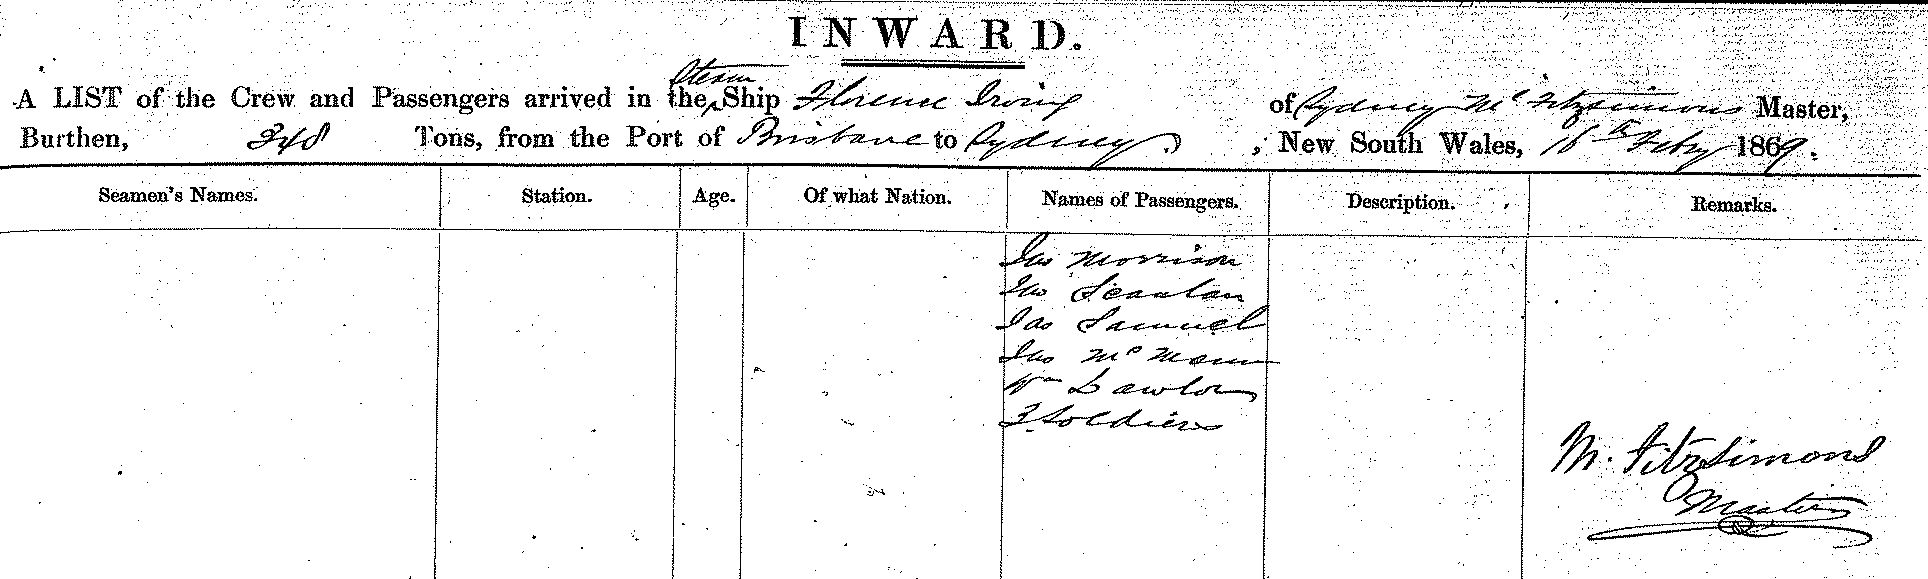 INWARD.
Steam
A LIST of the Crew and Passengers arrived in the Ship Florence Irving of Sydney Mc Fitzsimons Master,
Burthen, 348 Tons, from the Port of Brisbane to Sydney. , New South Wales, 16th Feby 1869.
Seamen's Names. Station. Age. Of what Nation. Names of Passengers. Description. Remarks.
Jas Morrison
Jas Scanlan
Jas Samuel
Jas Mc
Wm
3 Soldiers
M. Fitzsimons
Master